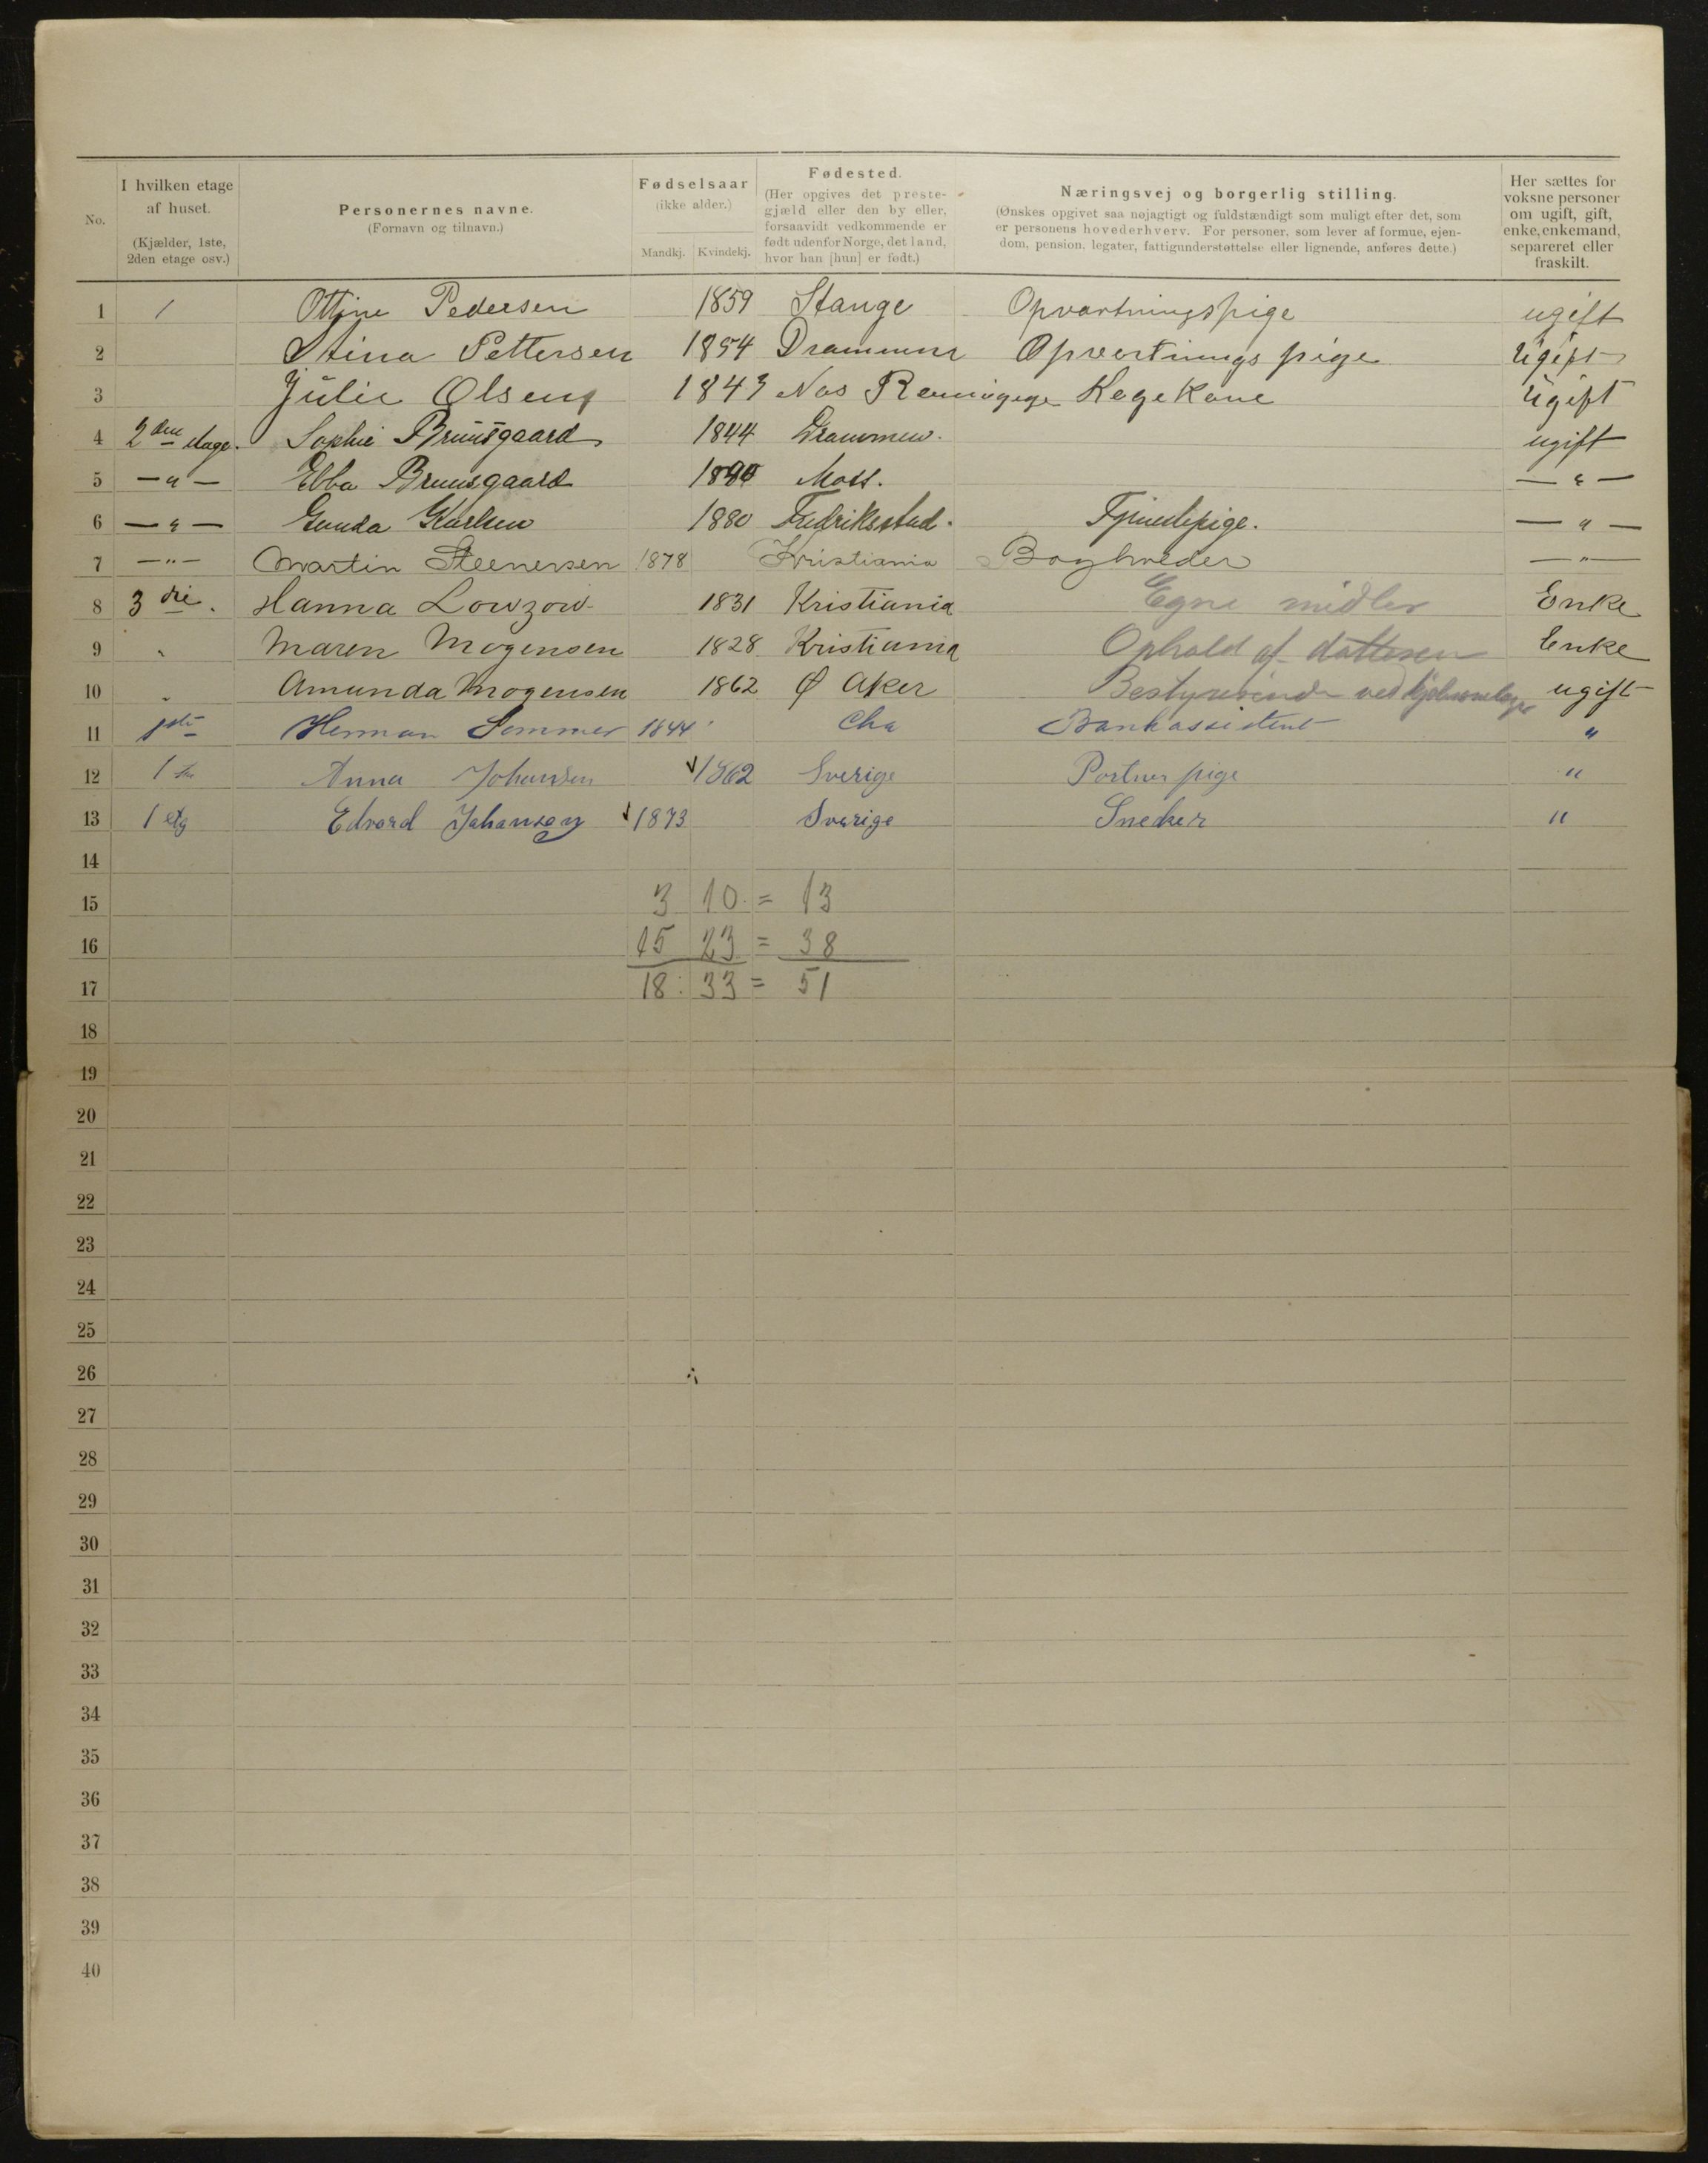 No. I hvilken etage af huset. (Kjælder, 1ste, 2den etage osv.) Personernes navne. (Fornavn og tilnavn.) Fødselsaar (ikke alder.) Mandkj. Kvindekj. Fødested. (Her opgives det prestegjæld eller den by eller, forsaavidt vedkommende er født udenfor Norge, det land, hvor han [hun] er født.) Næringsvej og borgerlig stilling. (Ønskes opgivet saa nøjagtigt og fuldstændigt som muligt efter det, som er personens hovederhverv. For personer, som lever af formue, ejendom, pension, legater, fattigunderstøttelse eller lignende, anføres dette.) Her sættes for voksne personer om ugift, gift, enke, enkemand, separeret eller fraskilt.
1 1 Ottine Pedersen 1859 Stange Opvartningspige ugift
2 Stina Pettersen 1854 Drammen Opvertnings pige Ugift
3 Julie Olsen 1843 Nas Kogekone Ugift
4 2den etage. Sophie Bruusgaard 1844 Drammen. ugift
5 — " — Ebba Bruusgaard Moss. — " —
6 — " — Gunda Karlsen 1880 Fredriksstad. Tjenestepige. — " —
7 — " — Martin Steenersen 1878 Kristiania — " —
8 3die. Hanna Lowzow 1831 Kristiania Egne midler Enke
9 " Maren Mogensen 1828 Kristiania Ophold af datteren Enke
10 " Amunda Mogensen 1862 Ø Aker Bestyrerinde ved ugift
11 1ste Herman Sommer 1844 Cha Bankassistent "
12 1ste Anna Johansen 1862 Sverige Portner pige "
13 1 etg Edvard Johansen 1873 Sverige Sneker "
14
15 3 10 = 13
16 15 23 = 38
17 18 : 33 = 51
18
19
20
21
22
23
24
25
26
27
28
29
30
31
32
33
34
35
36
37
38
39
40